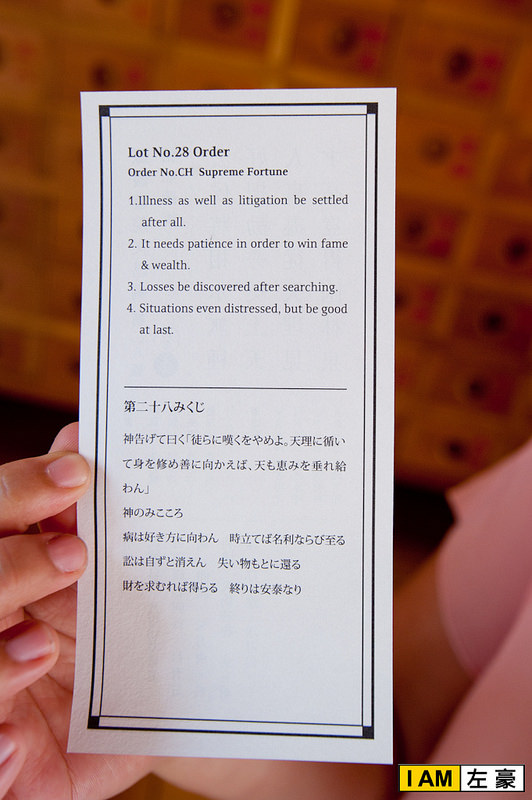 Lot No.28 Order
Order No.CH Supreme Fortune
1.Illness as well as litigation be settled
after all.
2. It needs patience in order to win fame
& wealth.
3. Losses be discovered after searching.
4. Situations even distressed, but be good
at last.
第二十八みくじ
神告げて曰く「徒らに嘆くをやめよ。天理に循い
て身を修め善に向かえば、天も恵みを垂れ給
わん」
神のみこころ
病は好き方に向わん　時立てば名利ならび至る
訟は自ずと消えん　失い物もとに還る
財を求むれば得らる　終りは安泰なり
I AM 左豪